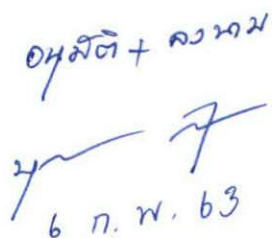 อนุมัติ + ลงนาม
6 ก.พ. 63